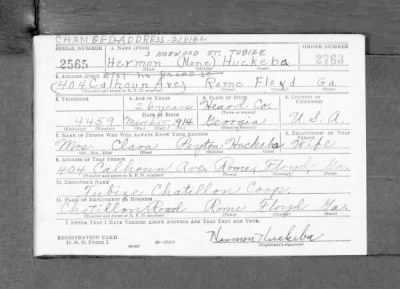 CHANGED ADDRESS-2/8/42
2 NORWOOD ST. TUBIZE
SERIAL NUMBER 1. NAME (Print) ORDER NUMBER
2565 Hermon (None) Huckeba 2763
2. ADDRESS (Print)
(404 Calhoun Ave) Rome Floyd Ga
3. TELEPHONE 4. AGE IN YEARS 5. PLACE OF BIRTH 6. COUNTRY OF CITIZENSHIP
26 years Heard Co.
DATE OF BIRTH
4459 March 15, 1914 Georgia U.S.A.
7. NAME OF PERSON WHO WILL ALWAYS KNOW YOUR ADDRESS 8. RELATIONSHIP OF THAT PERSON
Mrs. Clara Peyton Huckeba Wife
9. ADDRESS OF THAT PERSON
404 Calhoun Ave, Rome, Floyd, Ga.
10. EMPLOYER'S NAME
Tubize Chatillon Corp.
11. PLACE OF EMPLOYMENT OR BUSINESS
Chatillon Road Rome Floyd Ga
I AFFIRM THAT I HAVE VERIFIED ABOVE ANSWERS AND THAT THEY ARE TRUE.
REGISTRATION CARD
D. S. S. FORM 1
Hermon Huckeba